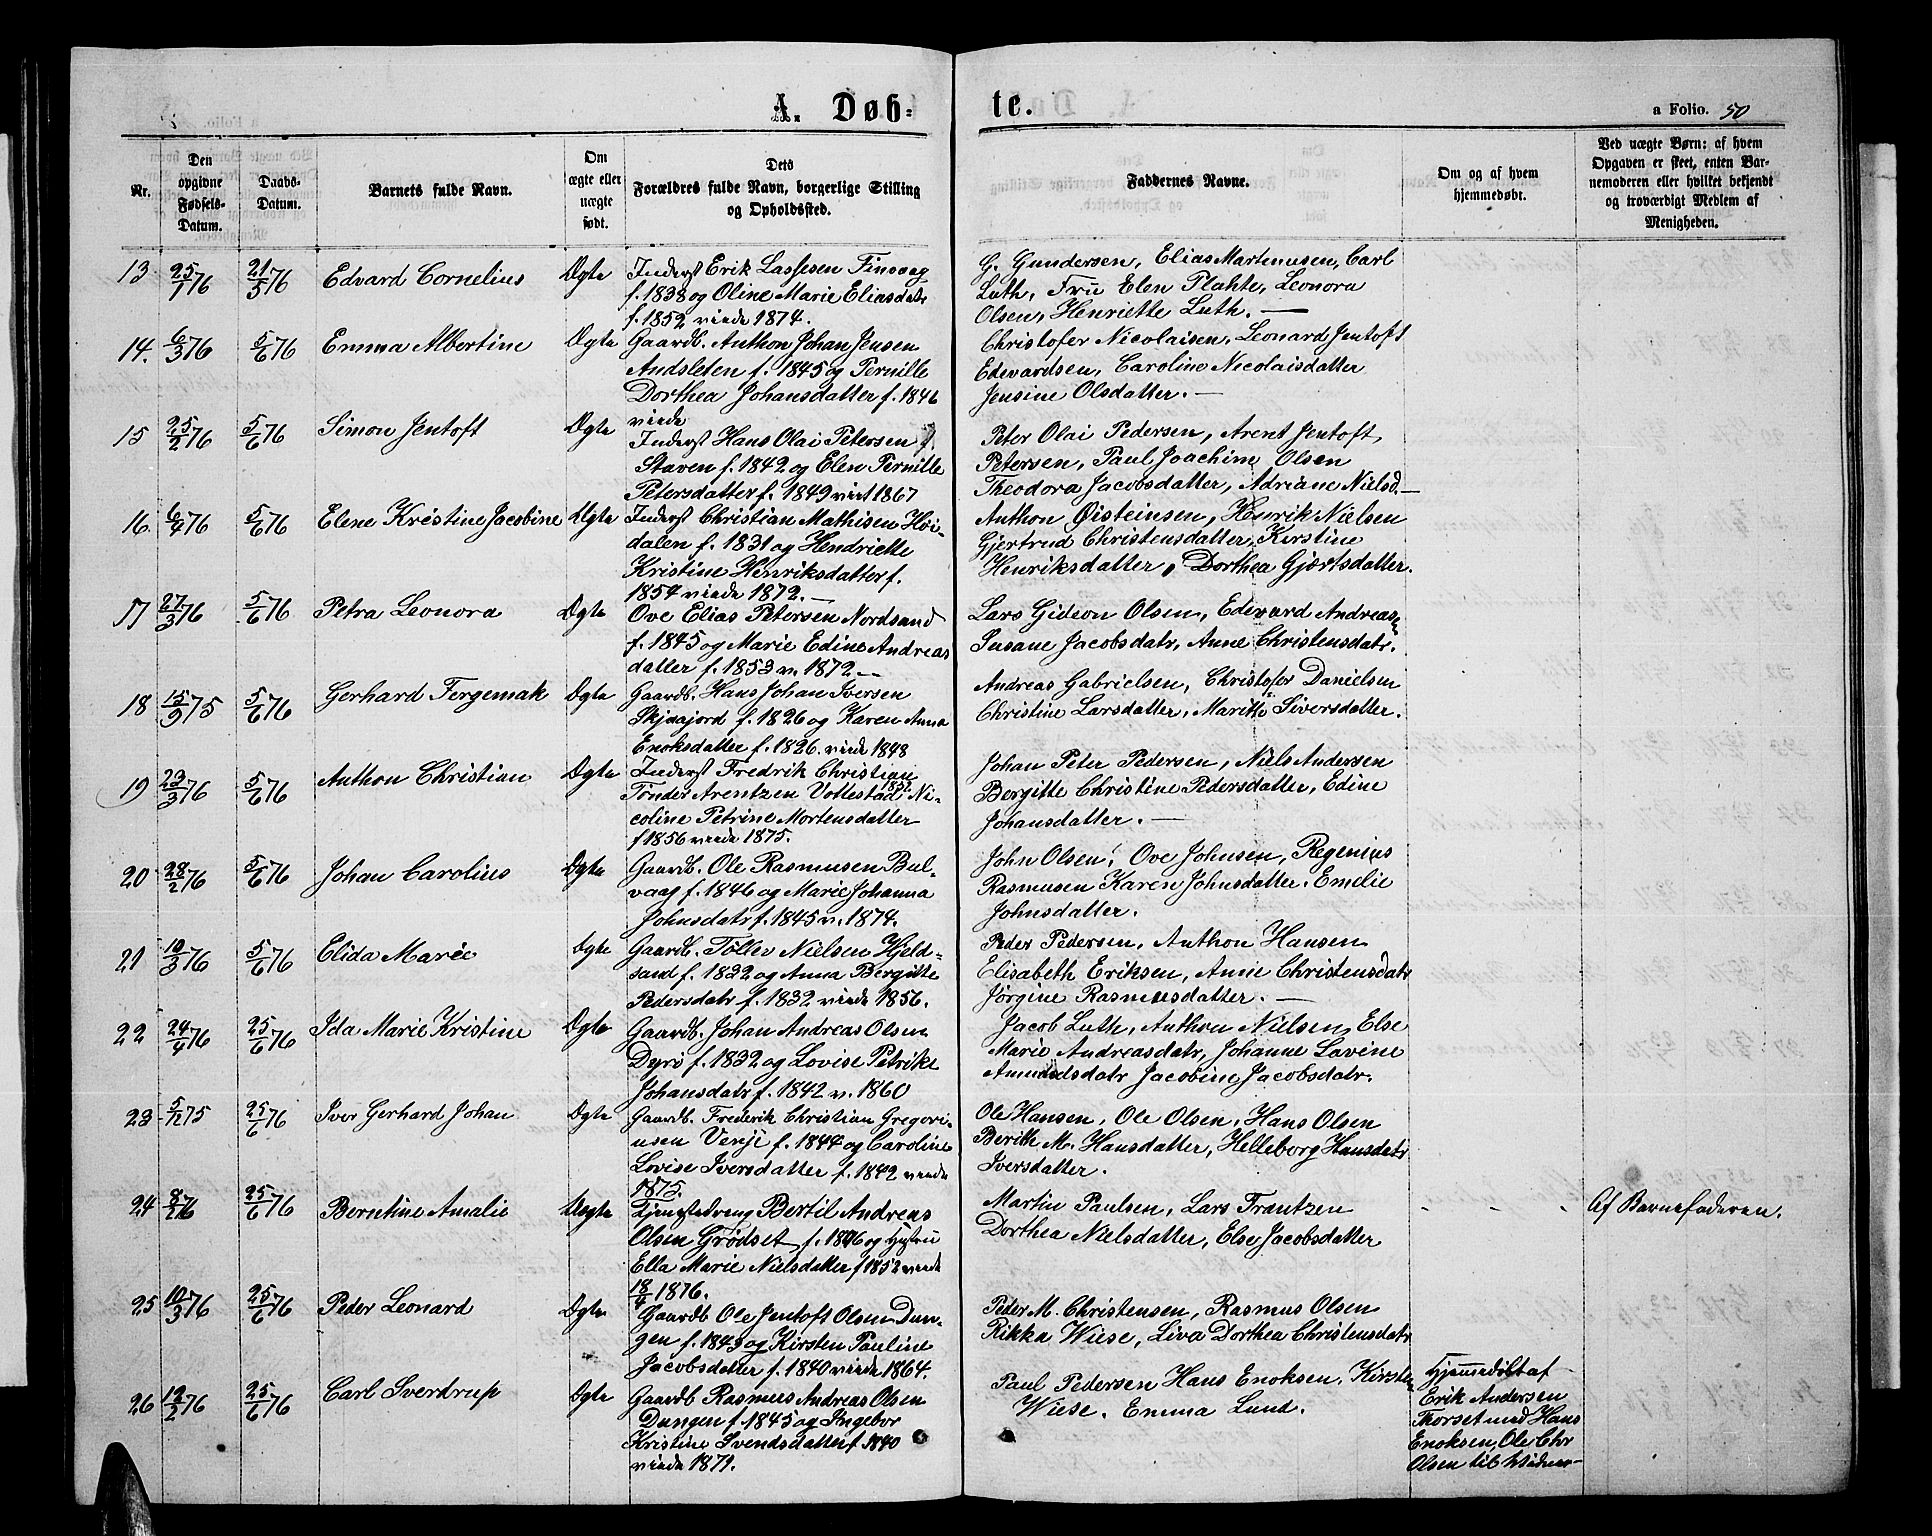 A. Døbte.
a Folio. 50
Nr.
Den opgivne Fødsels-Datum.
Daabs-Datum.
Barnets fulde Navn.
Om ægte eller uægte født.
Dets Forældres fulde Navn, borgerlige Stilling og Opholdssted.
Faddernes Navne.
Om og af hvem hjemmedøbt.
Ved uægte Børn: af hvem Opgaven er skeet, enten Barnemoderen eller hvilket bekjendt og troværdigt Medlem af Menigheden.
13 25/1 76 21/5 76 Edvard Cornelius Ægte
Inderst Erik Lassesen Finvaag
f. 1838 og Oline Marie Eliasdatr
f. 1852 viede 1874.
G. Gundersen, Elias Martinusen, Carl
Luth, Fru Elen Plahte, Leonora
Olsen, Henriette Luth. —
14. 6/3 76 5/6 76 Emma Albertine Ægte
Gaardb. Anthon Johan Jensen
Andsleten f. 1845 og Pernille
Dorthea Johansdatter f. 1846
viede
Christofer Nicolaisen, Leonard Jentoft
Edevardsen, Caroline Nicolaisdatter
Jensine Olsdatter. —
15 25/2 76 5/6 76 Simon Jentoft Ægte
Inderst Hans Olai Petersen
Staven f. 1842 og Elen Pernille
Petersdatter f. 1849 viet 1867
Peter Olai Pedersen, Arent Jentoft
Petersen, Paul Joachim Olsen
Theodora Jacobsdatter, Adriane Nielsd. —
16 6/4 76 5/6 76 Elene Kristine Jacobine Ægte
Inderst Christian Mathisen Høi-
dalen f. 1831 og Hendriette
Kristine Henriksdatter f.
1854 viede 1872. —
Anthon Øisteinsen, Henrik Nielsen
Gjertrud Christensdatter, Kirstine
Henriksdatter, Dorthea Gjertsdatter.
17 27/3 76 5/6 76 Petra Leonora Ægte
Ove Elias Petersen Nordsand
f. 1845 og Marie Edine Andreas
datter f. 1853 v. 1872. —
Lars Gideon Olsen, Edevard Andreas
Susane Jacobsdatr, Anne Christensdatr.
18 15/9 75 5/6 76 Gerhard Fergemak Ægte
Gaardb. Hans Johan Iversen
Skjaajord f. 1826 og Karen Anna
Enoksdatter f. 1826. viede 1848
Andreas Gabrielsen, Christofer Danielsen
Christine Larsdatter, Marith Siversdatter.
19 23/3 76 5/6 76 Anthon Christian Ægte
Inderst Fredrik Christian
Tønder Arentzen Vottestad 1852 Ni-
coline Petrine Mortensdatter
f 1856 viede 1875.
Johan Peter Pedersen, Niels Andersen
Bergitte Christine Pedersdatter, Edine
Johansdatter. —
20 28/2 76 5/6 76 Johan Carolius Ægte
Gaardb. Ole Rasmusen Bul-
vaag f. 1846 og Marie Johanna
Johnsdatr f. 1845 v. 1874.
John Olsen, Ove Johnsen, Regenius
Rasmusen Karen Johnsdatter, Emelie
Johnsdatter.
21 10/3 76 5/6 76 Elida Marie Ægte
Gaardb. Tollev Nielsen Kjeld-
sand f. 1832 og Anna Bergitte
Pedersdatr f. 1832 viede 1856.
Peder Pedersen, Anthon Hansen
Elisabeth Eriksen, Anne Christensdatr
Jørgine Rasmusdatter. —
22 24/4 76 25/6 76 Ida Marie Kristine Ægte
Gaardb. Johan Andreas Olsen
Dyrø f. 1832 og Lovise Petrike
Johansdatr f. 1842 v. 1860
Jacob Luth, Anthon Nielsen, Else
Marie Andreasdatr, Johanne Lovine
Amundsdatr Jacobine Jacobsdatr.
23 5/12 75 25/6 76 Iver Gerhard Johan Ægte
Gaardb. Frederik Christian Gregori-
usen Verje f. 1844 og Caroline
Lovise Iversdatter f. 1842 viede
1875.
Ole Hansen, Ole Olsen, Hans Olsen
Berith M. Hansdatter, Helleborg Hansdatr
Iversdatter.
24 8/2 76 25/6 76 Berntine Amalie Uegte
Tjenestedreng Bertil Andreas
Olsen Grødset f. 1846 og Hustru
Ella Marie Nielsdatter f 1852 viede
18/4 1876.
Martin Paulsen, Lars Frantzen
Dorthea Nielsdatter, Else Jacobsdatter
Af Barnefaderen.
25 10/3 76 25/6 76 Peder Leonard Ægte
Gaardb Ole Jentoft Olsen Dun-
gen f. 1843 og Kirsten Pauline
Jacobsdatter f. 1840 viede 1864.
Peder M. Christensen, Rasmus Olsen
Rikka Wiese, Liva Dorthea Christensdatr
26 12/2 76 25/6 76 Carl Sverdrup Ægte
Gaardb Rasmus Andreas Olsen
Dungen f. 1845 og Ingebor
Kristine Svendsdatter f. 1840
viede 1871.
Paul Pedersen Hans Enoksen, Kirsten
Wiese. Emma Lund.
Hjemmedøbt af
Erik Andersen
Thorset med Hans
Enoksen, Ole Chr
Olsen til Vidner